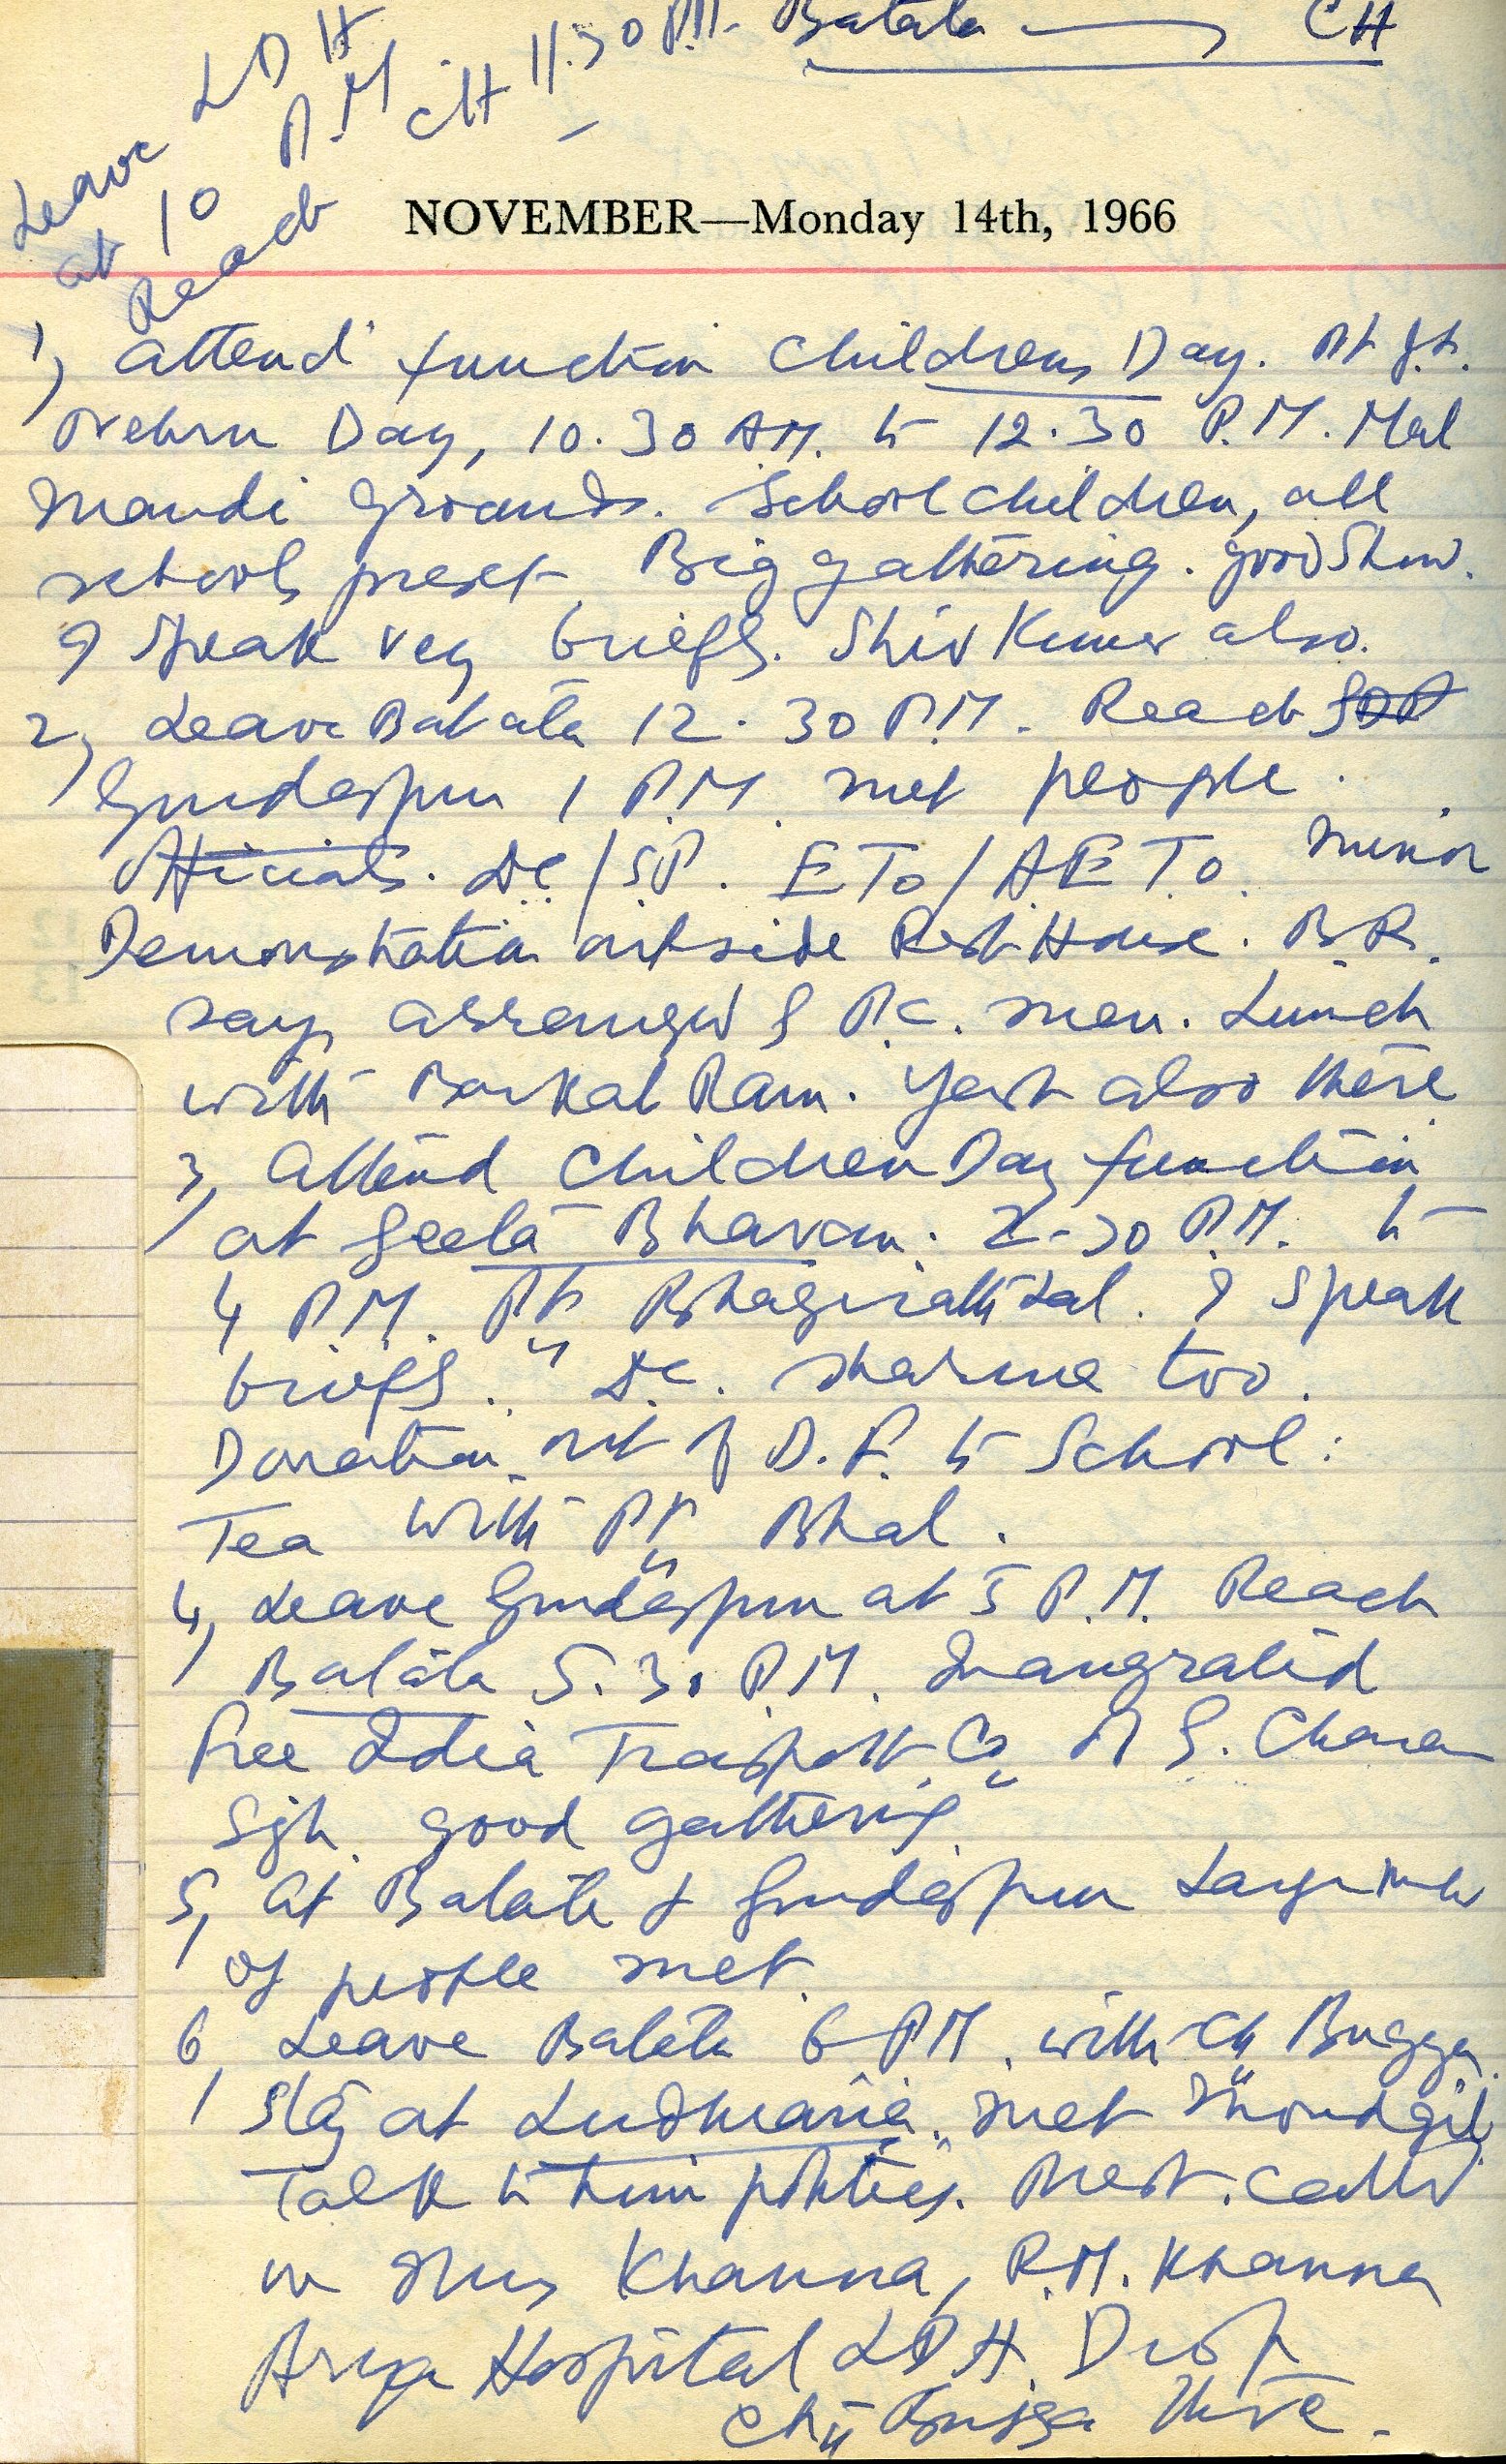 Batala ⟶ CH
Leave LDH
at 10 P.M.
Reach CH 11.30 P.M.
NOVEMBER—Monday 14th, 1966
1, Attend function Childrens Day. At Jt.
Nehru Day, 10.30 AM. to 12.30 P.M. Mal
Mandi Grounds. School children, all
schools preset. Big gathering. good Show.
I speak very briefly. Shiv Kumar also.
2, Leave Batala 12.30 P.M. Reach
Gurdaspur 1 P.M. met people.
Officials. DC/SP. ETO/AETO. Minor
Demonstration outside Rest House. B.R.
says arranged by P.C. men. Lunch
with Barkat Ram. Yash also there
3, Attend Children Day function
at Geeta Bhavan. 2-30 P.M. to
4 P.M. Pt Bhagirath Lal. I speak
briefly. D.C. Sharma too.
Donation out of D.F. to School.
Tea with Pt Bhal.
4, Leave Gurdaspur at 5 P.M. Reach
Batala 5.30 P.M. Inaugrated
Free Idia Trasport Co of S. Charan
Sigh good gathering
5, At Batala & Gurdaspur Large
of people met.
6, Leave Batala 6 PM. with Ch Bugga.
Stay at Ludhiana. met Moudgil
Talk to him politics. Next. called
on Mrs Khanna, R.M. Khanna
Arya Hospital LDH. Drop
Ch Bugga there.